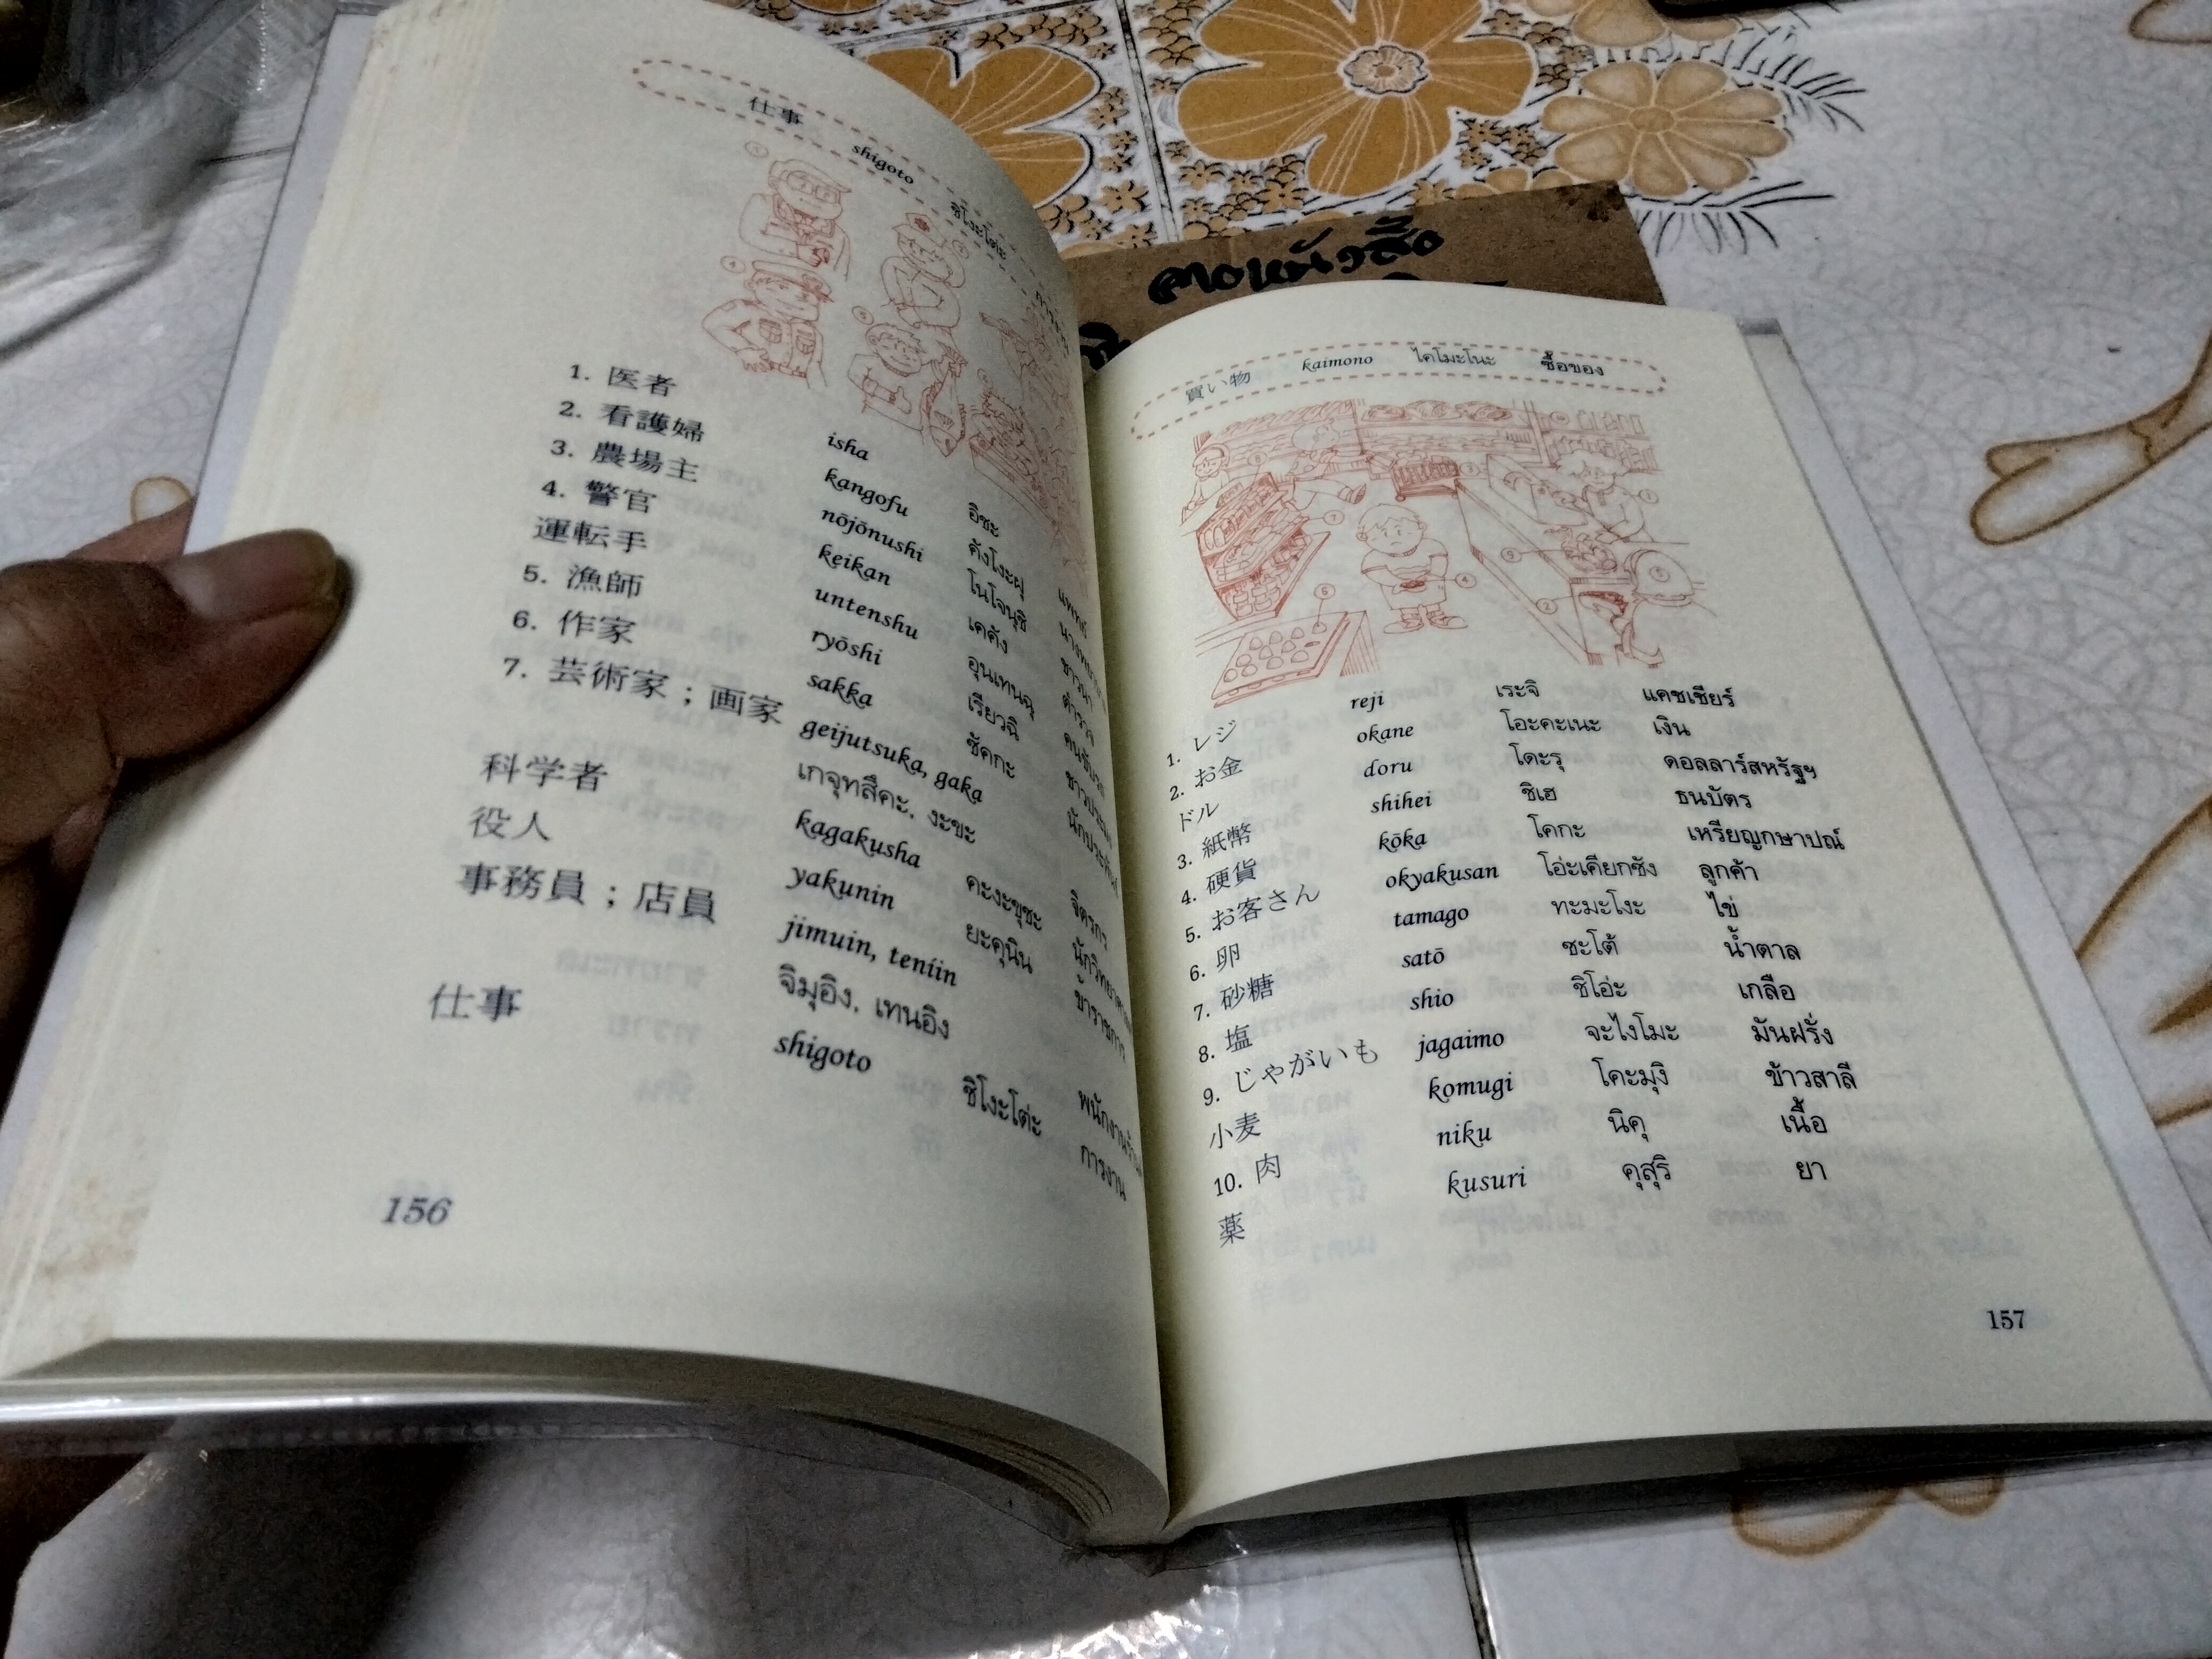 仕事 shigoto ชิโงะโต่ะ
1. 医者 isha อิชะ แพทย์
2. 看護婦 kangofu คังโงะฝุ
3. 農場主 nōjōnushi โนโจนุชิ ชาวนา
4. 警官 keikan เคคัง ตำรวจ
運転手 untenshu อุนเทนฉุ
5. 漁師 ryōshi เรียวฉิ
6. 作家 sakka ซัคกะ
7. 芸術家；画家 geijutsuka, gaka
เกจุทสึคะ, งะขะ จิตรกร
科学者 kagakusha คะงะขุชะ
役人 yakunin ยะคุนิน ข้าราชการ
事務員；店員 jimuin, teniin
จิมุอิง, เทนอิง
仕事 shigoto ชิโงะโต่ะ การงาน
156
ลางหนังสื้อ
買い物 kaimono ไคโมะโนะ ซื้อของ
1. レジ reji เระจิ แคชเชียร์
2. お金 okane โอะคะเนะ เงิน
ドル doru โดะรุ ดอลลาร์สหรัฐฯ
3. 紙幣 shihei ชิเฮ ธนบัตร
4. 硬貨 kōka โคกะ เหรียญกษาปณ์
5. お客さん okyakusan โอ่ะเคียกซัง ลูกค้า
6. 卵 tamago ทะมะโงะ ไข่
7. 砂糖 satō ซะโต้ น้ำตาล
8. 塩 shio ชิโอ่ะ เกลือ
9. じゃがいも jagaimo จะไงโมะ มันฝรั่ง
小麦 komugi โคะมุงิ ข้าวสาลี
10. 肉 niku นิคุ เนื้อ
薬 kusuri คุสุริ ยา
157